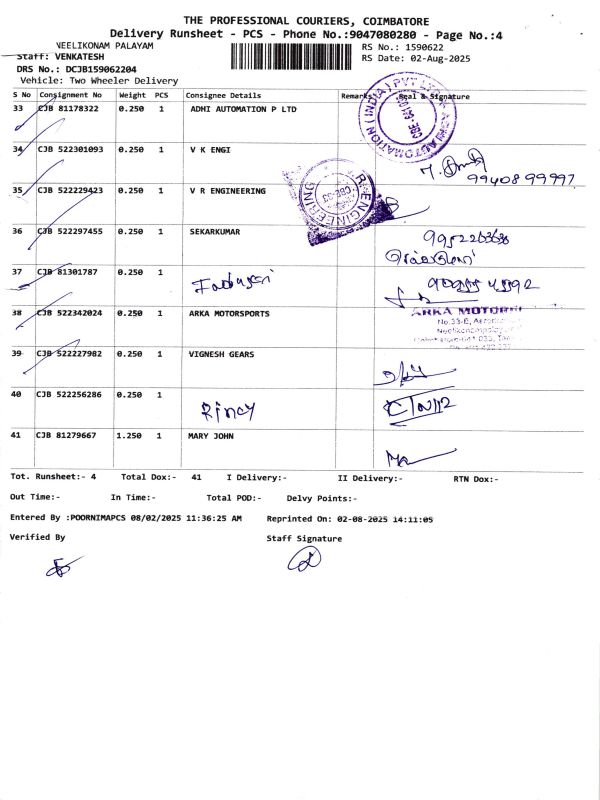 THE PROFESSIONAL COURIERS, COIMBATORE
Delivery Runsheet - PCS - Phone No.:9047080280 - Page No.:4
VEELIKONAM PALAYAM
RS No.: 1590622
Staff: VENKATESH
RS Date: 02-Aug-2025
DRS No.: DCJB159062204
Vehicle: Two Wheeler Delivery
S No Consignment No Weight PCS Consignee Details Remarks Seal & Signature
33 CJB 81178322 0.250 1 ADHI AUTOMATION P LTD
34 CJB 522301093 0.250 1 V K ENGI
99408 99997
35 CJB 522229423 0.250 1 V R ENGINEERING
R. ENGINEERING
CBE-33
36 CJB 522297455 0.250 1 SEKARKUMAR
37 CJB 81301787 0.250 1
38 CJB 522342024 0.250 1 ARKA MOTORSPORTS
ARKA MOTOR
39 CJB 522227982 0.250 1 VIGNESH GEARS
40 CJB 522256286 0.250 1 Rincy
41 CJB 81279667 1.250 1 MARY JOHN
Tot. Runsheet:- 4 Total Dox:- 41 I Delivery:- II Delivery:- RTN Dox:-
Out Time:- In Time:- Total POD:- Delvy Points:-
Entered By :POORNIMAPCS 08/02/2025 11:36:25 AM Reprinted On: 02-08-2025 14:11:05
Verified By Staff Signature